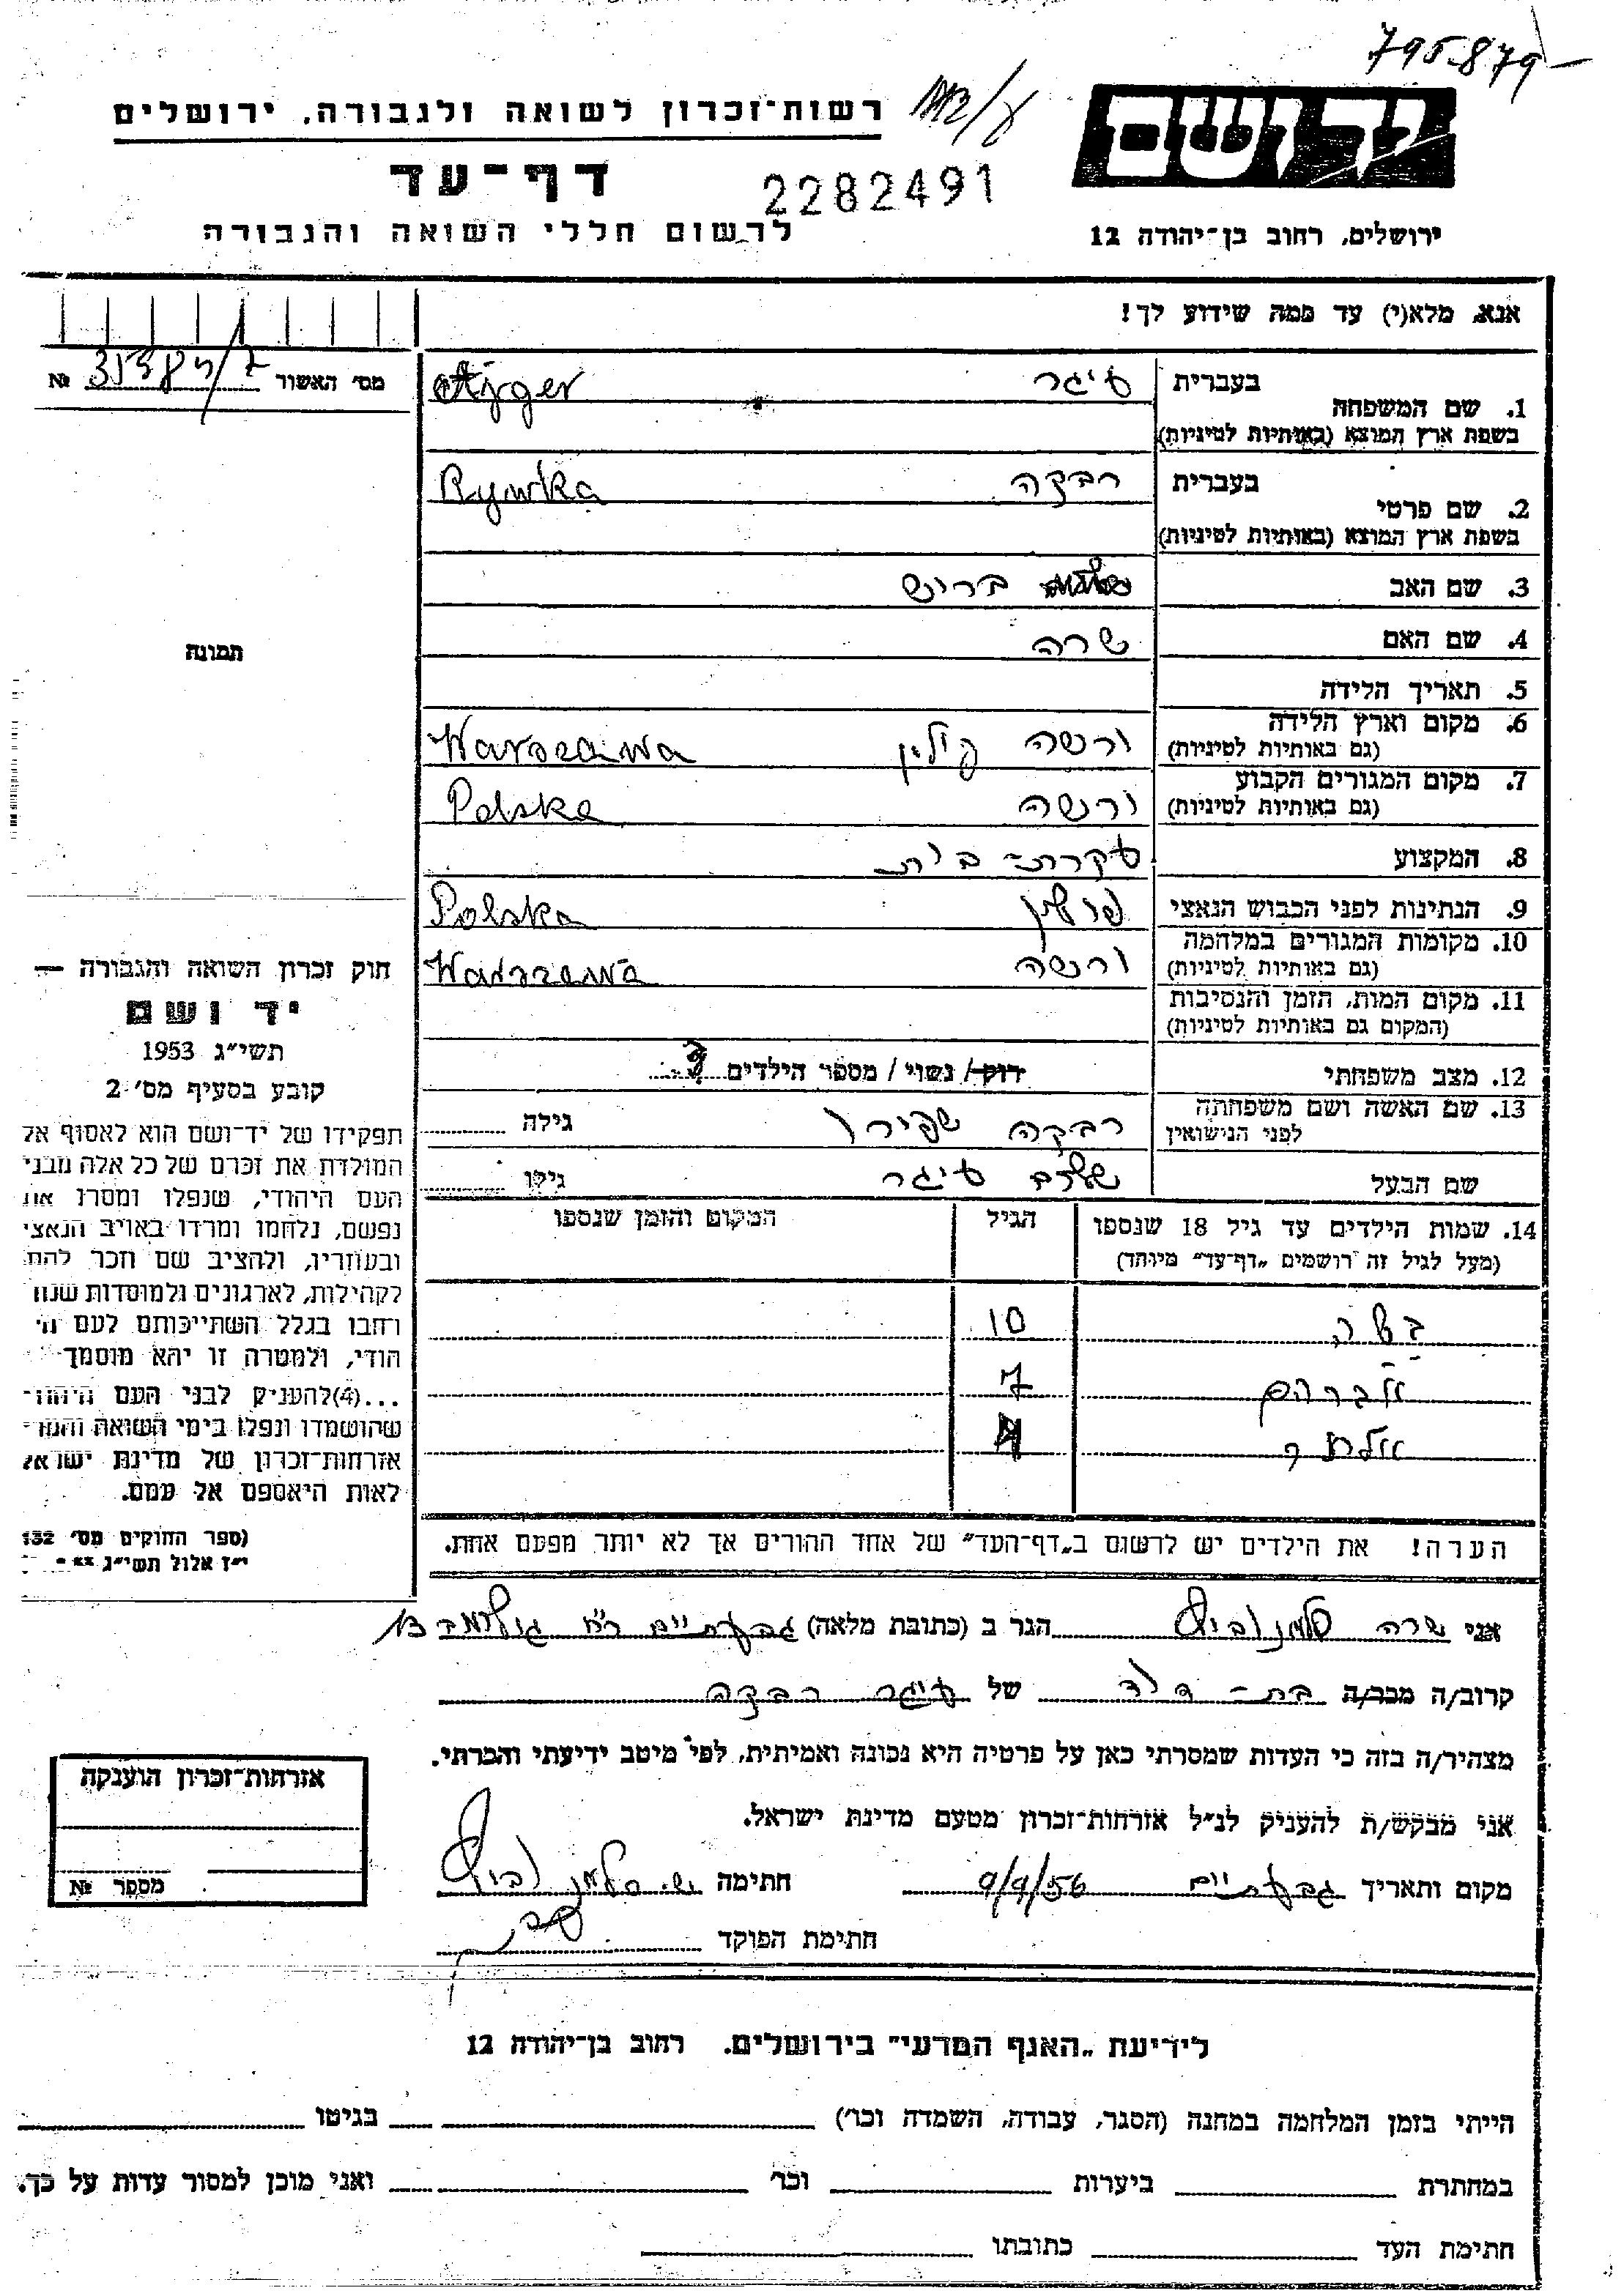 795.879
יד ושם
רשות־זכרון לשואה ולגבורה, ירושלים
דף־עד
2282491
לרשום חללי השואה והגבורה
ירושלים, רחוב בן־יהודה 12
אנא, מלא(י) עד כמה שידוע לך!
מס׳ האשור №
1. שם המשפחה בעברית עיגר Ajger
בשפת ארץ המוצא (באותיות לטיניות)
2. שם פרטי בעברית רבקה Rywka
בשפת ארץ המוצא (באותיות לטיניות)
3. שם האב בריש
4. שם האם שרה
תמונה
5. תאריך הלידה
6. מקום וארץ הלידה ורשה פולין Warszawa
(גם באותיות לטיניות)
7. מקום המגורים הקבוע ורשה Polska
(גם באותיות לטיניות)
8. המקצוע עקרת־בית
9. הנתינות לפני הכבוש הנאצי פולין Polska
10. מקומות המגורים במלחמה ורשה Warszawa
(גם באותיות לטיניות)
11. מקום המות, הזמן והנסיבות
(המקום גם באותיות לטיניות)
12. מצב משפחתי רווק / נשוי / מספר הילדים 3
13. שם האשה ושם משפחתה רבקה שפירו גילה
לפני הנישואין
שם הבעל עיגר גילו
14. שמות הילדים עד גיל 18 שנספו הגיל המקום והזמן שנספו
(מעל לגיל זה רושמים „דף־עד״ מיוחד)
10
אברהם 7
אסתר 4
הערה! את הילדים יש לרשום ב„דף־העד״ של אחד ההורים אך לא יותר מפעם אחת.
חוק זכרון השואה והגבורה —
יד ושם
תשי״ג 1953
קובע בסעיף מס׳ 2
תפקידו של יד־ושם הוא לאסוף אל
המולדת את זכרם של כל אלה מבני
העם היהודי, שנפלו ומסרו את
נפשם, נלחמו ומרדו באויב הנאצי
ובעוזריו, ולהציב שם וזכר להם,
לקהילות, לארגונים ולמוסדות שנח־
רבו בגלל השתייכותם לעם הי־
הודי, ולמטרה זו יהא מוסמך
...(4)להעניק לבני העם היהודי
שהושמדו ונפלו בימי השואה והמרי
אזרחות־זכרון של מדינת ישראל
לאות היאספם אל עמם.
(ספר החוקים מס׳ 132
י״ז אלול תשי״ג
אני שרה הגר ב (כתובת מלאה) גבעתיים 13
קרוב/ה מכר/ה בת־דוד של עיגר רבקה
מצהיר/ה בזה כי העדות שמסרתי כאן על פרטיה היא נכונה ואמיתית, לפי מיטב ידיעתי והכרתי.
אני מבקש/ת להעניק לנ״ל אזרחות־זכרון מטעם מדינת ישראל.
מקום ותאריך גבעתיים 9/9/56 חתימה
חתימת הפוקד
אזרחות־זכרון הוענקה
מספר №
לידיעת „האגף המדעי״ בירושלים. רחוב בן־יהודה 12
הייתי בזמן המלחמה במחנה (הסגר, עבודה, השמדה וכו׳) בגיטו
במחתרת ביערות וכו׳ ואני מוכן למסור עדות על כך.
חתימת העד כתובתו